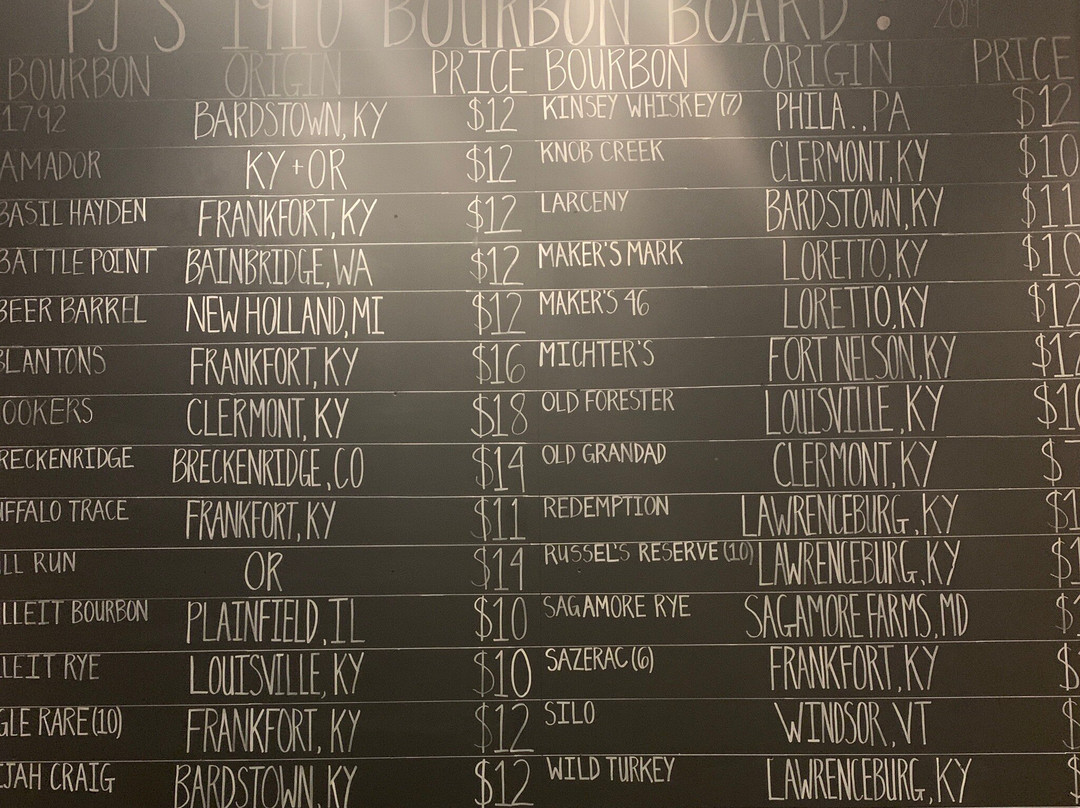 PJ'S 1910 BOURBON BOARD! 2019
BOURBON ORIGIN PRICE BOURBON ORIGIN PRICE
1792 BARDSTOWN, KY $12 KINSEY WHISKEY (7) PHILA., PA $12
AMADOR KY + OR $12 KNOB CREEK CLERMONT, KY $10
BASIL HAYDEN FRANKFORT, KY $12 LARCENY BARDSTOWN, KY $11
BATTLE POINT BAINBRIDGE, WA $12 MAKER'S MARK LORETTO, KY $10
BEER BARREL NEW HOLLAND, MI $12 MAKER'S 46 LORETTO, KY $12
BLANTONS FRANKFORT, KY $16 MICHTER'S FORT NELSON, KY $12
OOKERS CLERMONT, KY $18 OLD FORESTER LOUISVILLE, KY $10
RECKENRIDGE BRECKENRIDGE, CO $14 OLD GRANDAD CLERMONT, KY $
UFFALO TRACE FRANKFORT, KY $11 REDEMPTION LAWRENCEBURG, KY $1
LL RUN OR $14 RUSSEL'S RESERVE (10) LAWRENCEBURG, KY $1
LLEIT BOURBON PLAINFIELD, IL $10 SAGAMORE RYE SAGAMORE FARMS, MD $
LEIT RYE LOUISVILLE, KY $10 SAZERAC (6) FRANKFORT, KY $
GLE RARE (10) FRANKFORT, KY $12 SILO WINDSOR, VT $
IJAH CRAIG BARDSTOWN, KY $12 WILD TURKEY LAWRENCEBURG, KY $